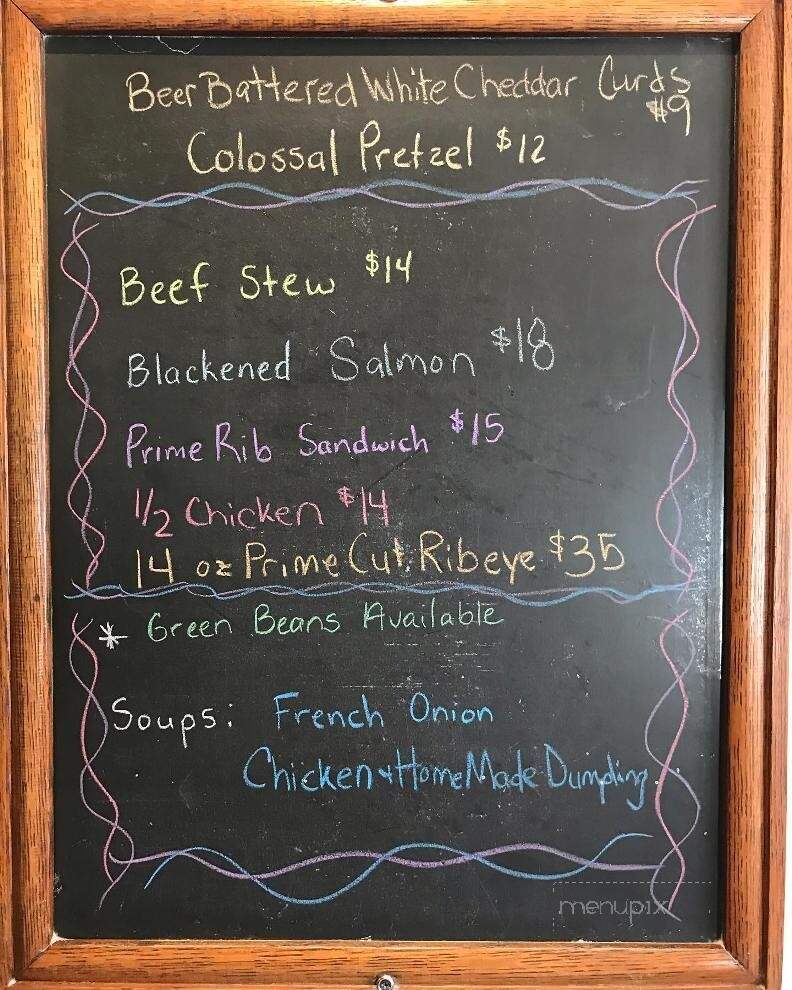 Beer Battered White Cheddar Curds
$9
Colossal Pretzel $12
Beef Stew $14
Blackened Salmon $18
Prime Rib Sandwich $15
1/2 Chicken $14
14 oz Prime Cut Ribeye $35
* Green Beans Available
Soups: French Onion
Chicken + HomeMade Dumpling
menupix